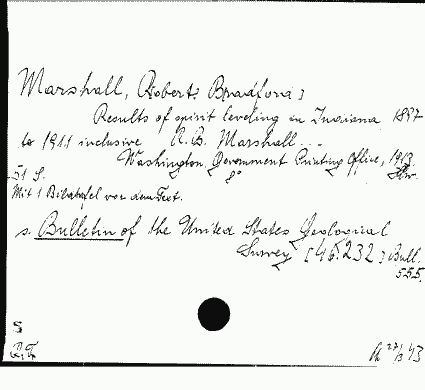 Marshall, Robert Bradford:
Results of spirit leveling in Indiana 1897
to 1911 inclusive R. B. Marshall...
Washington. Government Printing Office, 1913.
51 S. 8°
Mit 1 Bildtafel vor dem Text.
s. Bulletin of the United States Geological
Survey [46.232] Bull.
555.
S